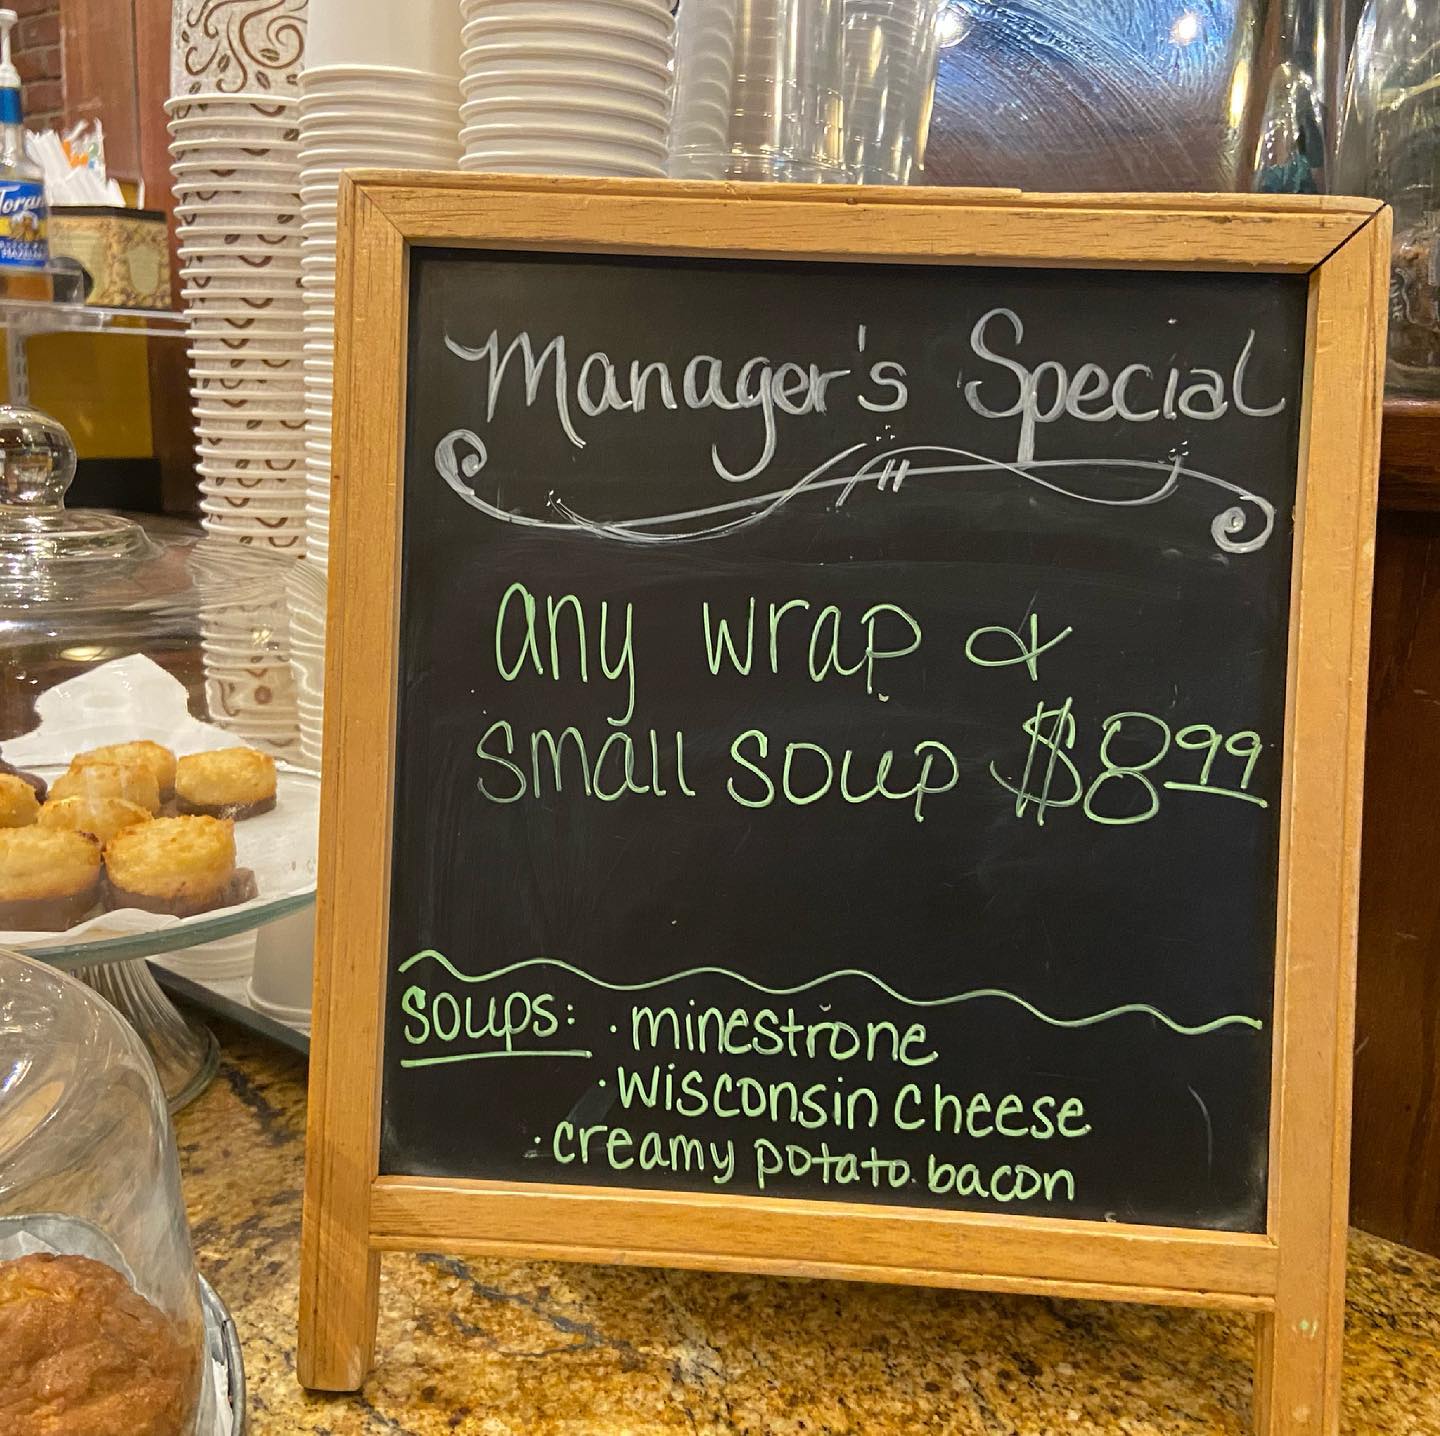 Manager's Special
any wrap &
small soup $8.99
soups: · minestrone
· Wisconsin Cheese
· creamy potato bacon